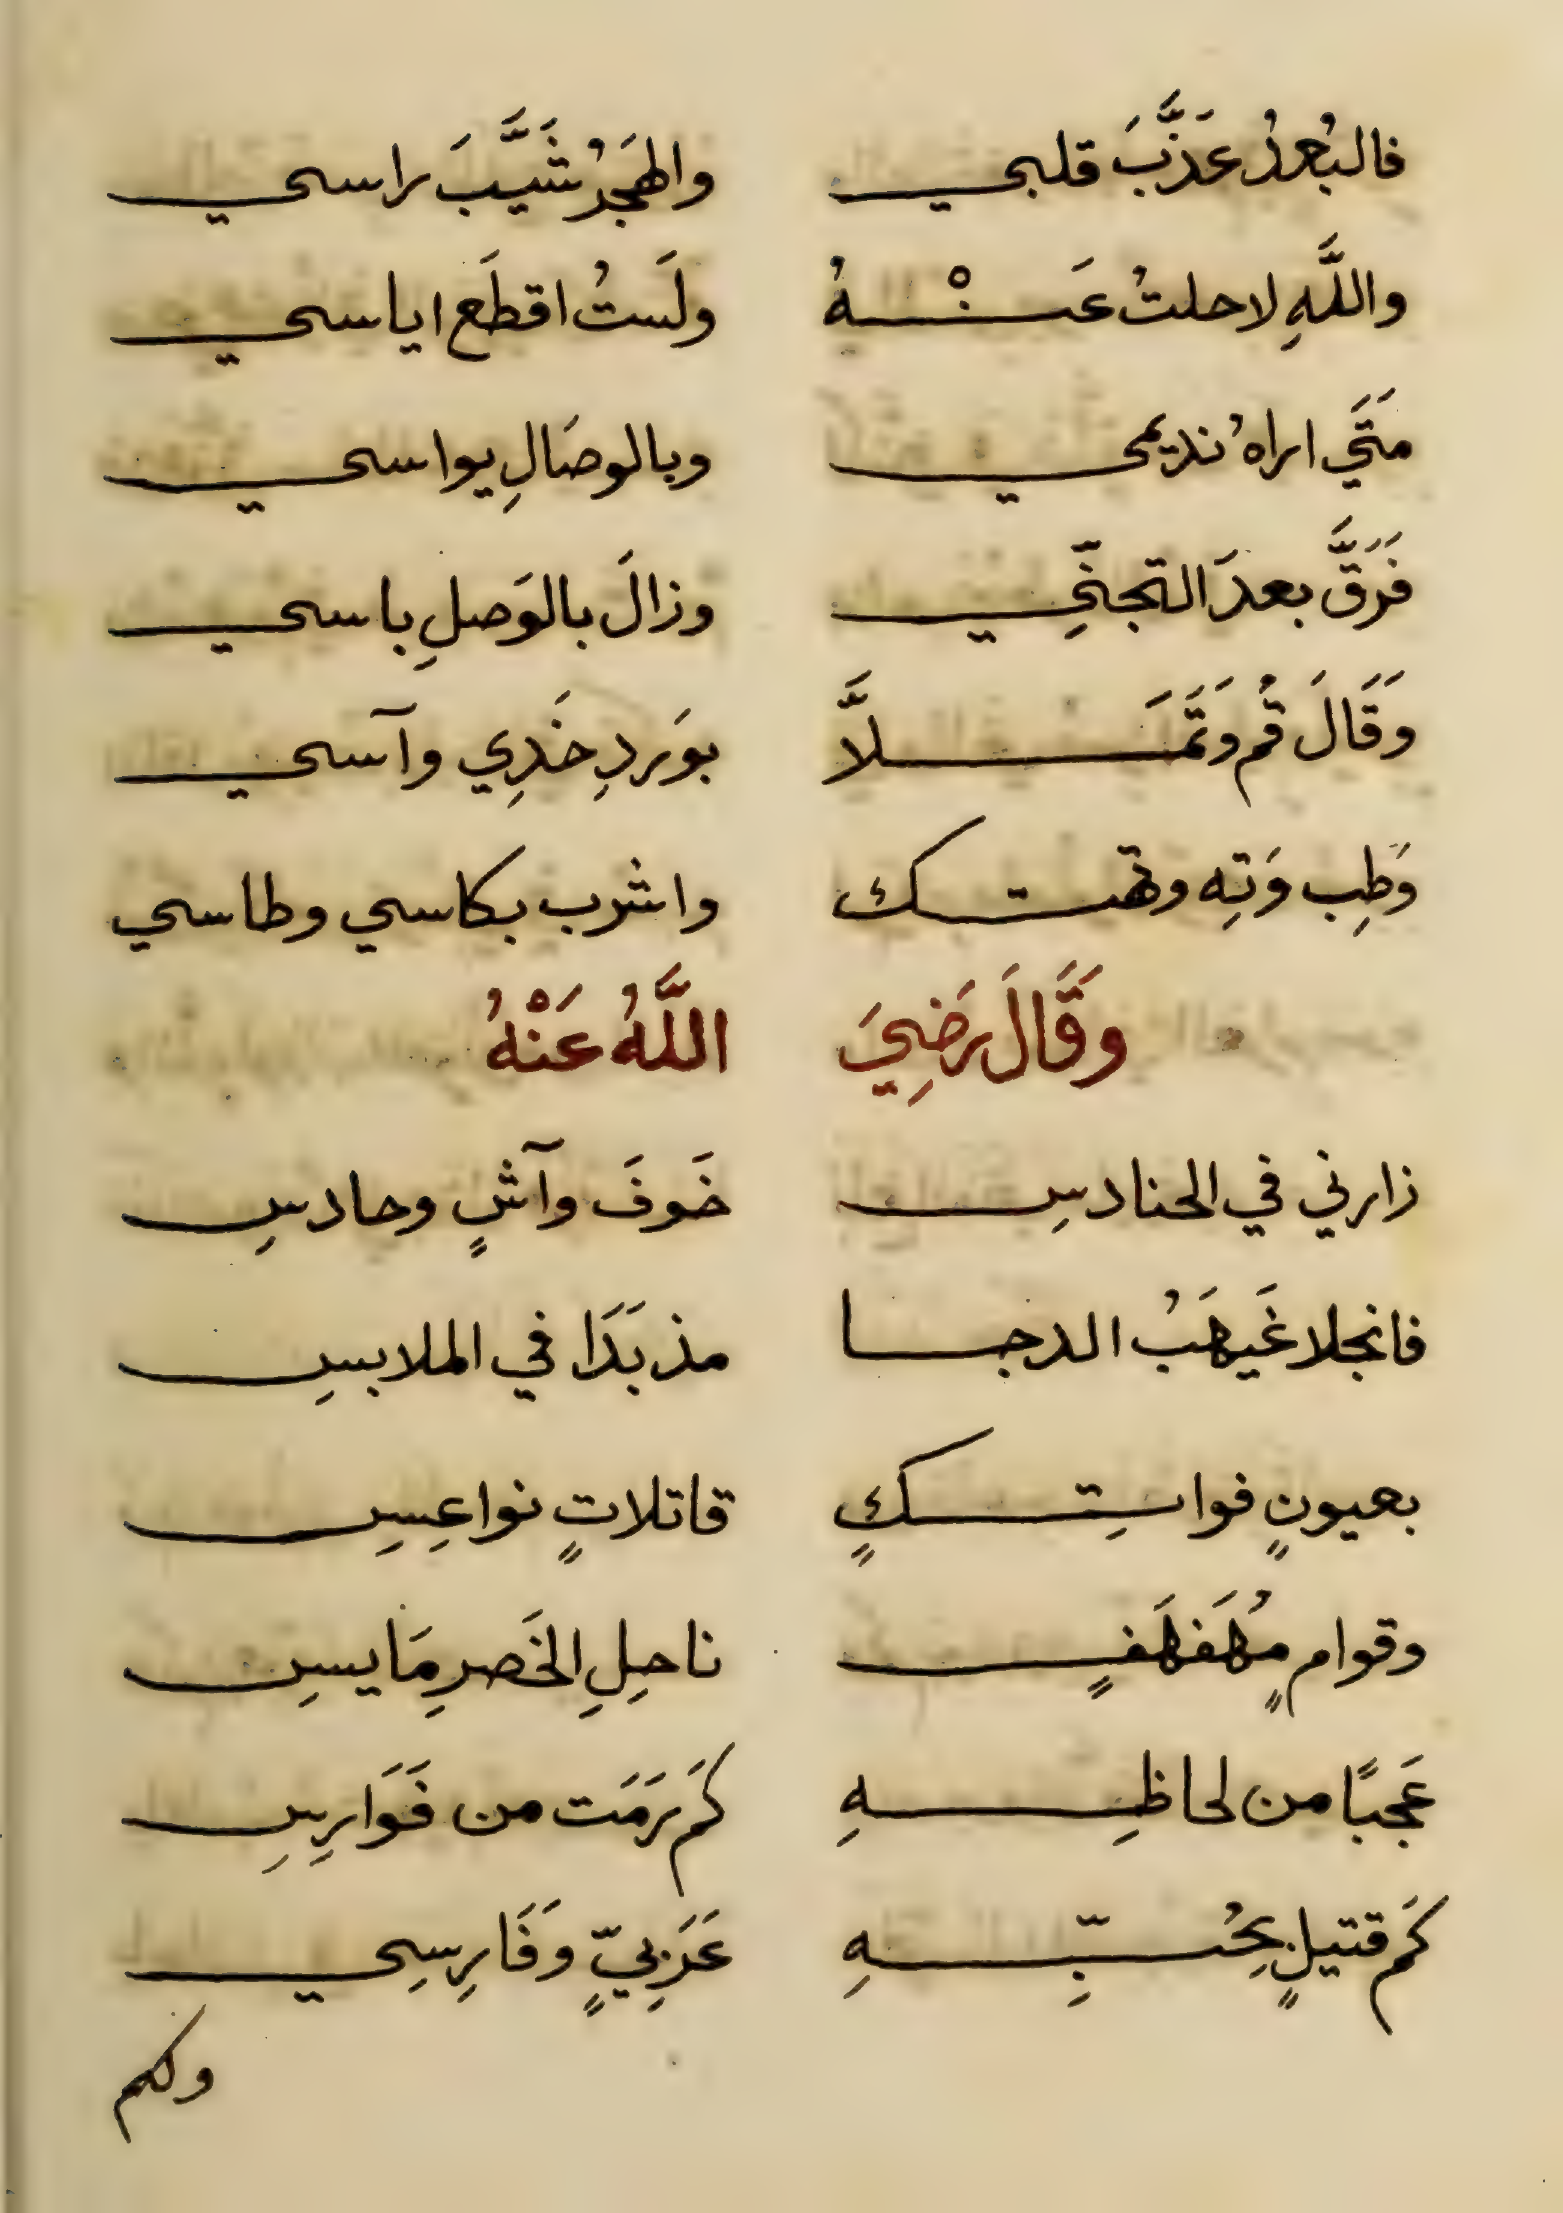 فالبُعدُ عَذَّبَ قلبي والهَجرُ شَيَّبَ راسي
واللَّهِ لا حلتُ عَنْهُ ولَستُ اقطَع اياسي
مَتَي اراهُ نديمي وبالوصَالِ يواسي
فَرَقَّ بعدَ التجنّي وزالَ بالوَصلِ باسي
وَقَالَ قُم وَتَمَلَّا بوَردِ خَدِي وآسي
وَطِب وَتِه وتهتك واشرب بكاسي وطاسي
وَقَالَ رَضِيَ اللَّهُ عَنْهُ
زارني في الحنادسِ خَوفَ وآشٍ وحادسِ
فانجلا غَيهَبُ الدجا مذ بَدَا في الملابسِ
بعيونٍ فواتِكٍ قاتلاتٍ نواعِسِ
وقوامٍ مُهَفهَفٍ ناحِلِ الخَصرِ مَايسِ
عَجبًا من لحاظِهِ كَم رَمَت من فَوَارِسِ
كَم قتيلٍ بِحُبِّهِ عَرَبِيٍّ وَفَارِسِي
ولكم